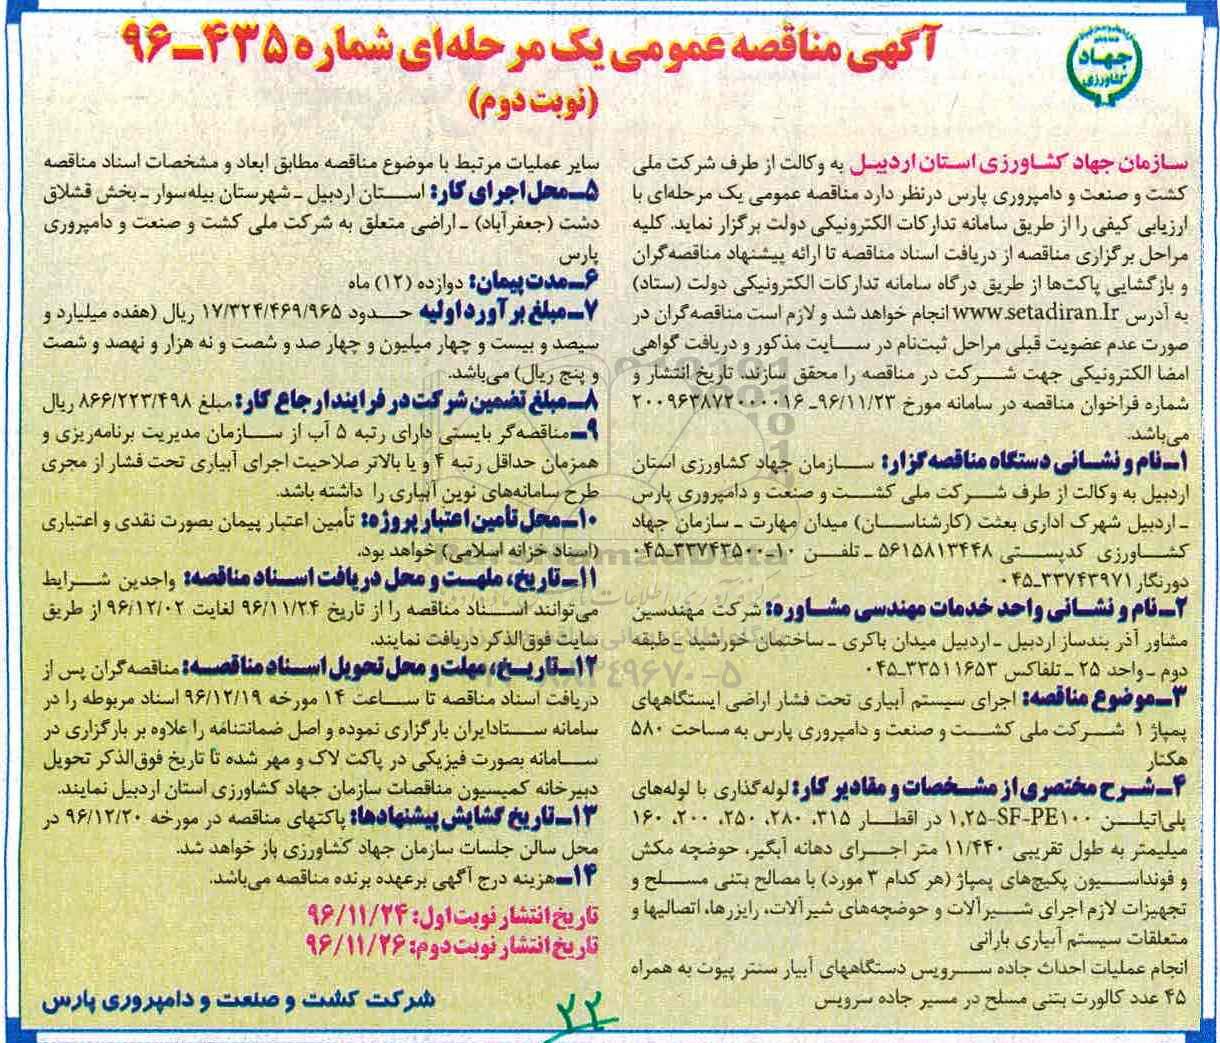 آگهی مناقصه عمومی یک مرحله‌ای شماره ۴۳۵-۹۶
(نوبت دوم)
جهاد
کشاورزی
سازمان جهاد کشاورزی استان اردبیل به وکالت از طرف شرکت ملی
کشت و صنعت و دامپروری پارس درنظر دارد مناقصه عمومی یک مرحله‌ای با
ارزیابی کیفی را از طریق سامانه تدارکات الکترونیکی دولت برگزار نماید. کلیه
مراحل برگزاری مناقصه از دریافت اسناد مناقصه تا ارائه پیشنهاد مناقصه‌گران
و بازگشایی پاکت‌ها از طریق درگاه سامانه تدارکات الکترونیکی دولت (ستاد)
به آدرس www.setadiran.Ir انجام خواهد شد و لازم است مناقصه‌گران در
صورت عدم عضویت قبلی مراحل ثبت‌نام در سایت مذکور و دریافت گواهی
امضا الکترونیکی جهت شرکت در مناقصه را محقق سازند. تاریخ انتشار و
شماره فراخوان مناقصه در سامانه مورخ ۹۶/۱۱/۲۳ـ ۲۰۰۹۶۳۸۷۲۰۰۰۰۱۶
می‌باشد.
۱ـ نام و نشانی دستگاه مناقصه گزار: سازمان جهاد کشاورزی استان
اردبیل به وکالت از طرف شرکت ملی کشت و صنعت و دامپروری پارس
ـ اردبیل شهرک اداری بعثت (کارشناسان) میدان مهارت ـ سازمان جهاد
کشاورزی کدپستی ۵۶۱۵۸۱۳۴۴۸ ـ تلفن ۱۰ـ۳۳۷۴۳۵۰۰ـ۰۴۵
دورنگار ۳۳۷۴۳۹۷۱ـ۰۴۵
۲ـ نام و نشانی واحد خدمات مهندسی مشاوره: شرکت مهندسین
مشاور آذر بندساز اردبیل ـ اردبیل میدان باکری ـ ساختمان خورشید ـ طبقه
دوم ـ واحد ۲۵ ـ تلفاکس ۳۳۵۱۱۶۵۳ـ۰۴۵
۳ـ موضوع مناقصه: اجرای سیستم آبیاری تحت فشار اراضی ایستگاههای
پمپاژ ۱ شرکت ملی کشت و صنعت و دامپروری پارس به مساحت ۵۸۰
هکتار
۴ـ شرح مختصری از مشخصات و مقادیر کار: لوله‌گذاری با لوله‌های
پلی‌اتیلن ۱,۲۵-SF-PE۱۰۰ در اقطار ۳۱۵، ۲۸۰، ۲۵۰، ۲۰۰، ۱۶۰
میلیمتر به طول تقریبی ۱۱/۴۴۰ متر اجرای دهانه آبگیر، حوضچه مکش
و فونداسیون پکیج‌های پمپاژ (هر کدام ۳ مورد) با مصالح بتنی مسلح و
تجهیزات لازم اجرای شیرآلات و حوضچه‌های شیرآلات، رایزرها، اتصالیها و
متعلقات سیستم آبیاری بارانی
انجام عملیات احداث جاده سرویس دستگاههای آبیار سنتر پیوت به همراه
۴۵ عدد کالورت بتنی مسلح در مسیر جاده سرویس
سایر عملیات مرتبط با موضوع مناقصه مطابق ابعاد و مشخصات اسناد مناقصه
۵ـ محل اجرای کار: استان اردبیل ـ شهرستان بیله‌سوار ـ بخش قشلاق
دشت (جعفرآباد) ـ اراضی متعلق به شرکت ملی کشت و صنعت و دامپروری
پارس
۶ـ مدت پیمان: دوازده (۱۲) ماه
۷ـ مبلغ برآورد اولیه حدود ۱۷/۳۲۴/۴۶۹/۹۶۵ ریال (هفده میلیارد و
سیصد و بیست و چهار میلیون و چهار صد و شصت و نه هزار و نهصد و شصت
و پنج ریال) می‌باشد.
۸ـ مبلغ تضمین شرکت در فرایند ارجاع کار: مبلغ ۸۶۶/۲۲۳/۴۹۸ ریال
۹ـ مناقصه‌گر بایستی دارای رتبه ۵ آب از سازمان مدیریت برنامه‌ریزی و
همزمان حداقل رتبه ۴ و یا بالاتر صلاحیت اجرای آبیاری تحت فشار از مجری
طرح سامانه‌های نوین آبیاری را داشته باشد.
۱۰ـ محل تأمین اعتبار پروژه: تأمین اعتبار پیمان بصورت نقدی و اعتباری
(اسناد خزانه اسلامی) خواهد بود.
۱۱ـ تاریخ، ملهت و محل دریافت اسناد مناقصه: واجدین شرایط
می‌توانند اسناد مناقصه را از تاریخ ۹۶/۱۱/۲۴ لغایت ۹۶/۱۲/۰۲ از طریق
سایت فوق‌الذکر دریافت نمایند.
۱۲ـ تاریخ، مهلت و محل تحویل اسناد مناقصه: مناقصه‌گران پس از
دریافت اسناد مناقصه تا ساعت ۱۴ مورخه ۹۶/۱۲/۱۹ اسناد مربوطه را در
سامانه ستادایران بارگزاری نموده و اصل ضمانتنامه را علاوه بر بارگزاری در
سامانه بصورت فیزیکی در پاکت لاک و مهر شده تا تاریخ فوق‌الذکر تحویل
دبیرخانه کمیسیون مناقصات سازمان جهاد کشاورزی استان اردبیل نمایند.
۱۳ـ تاریخ گشایش پیشنهادها: پاکتهای مناقصه در مورخه ۹۶/۱۲/۲۰ در
محل سالن جلسات سازمان جهاد کشاورزی باز خواهد شد.
۱۴ـ هزینه درج آگهی برعهده برنده مناقصه می‌باشد.
تاریخ انتشار نوبت اول: ۹۶/۱۱/۲۴
تاریخ انتشار نوبت دوم: ۹۶/۱۱/۲۶
شرکت کشت و صنعت و دامپروری پارس
۲۲